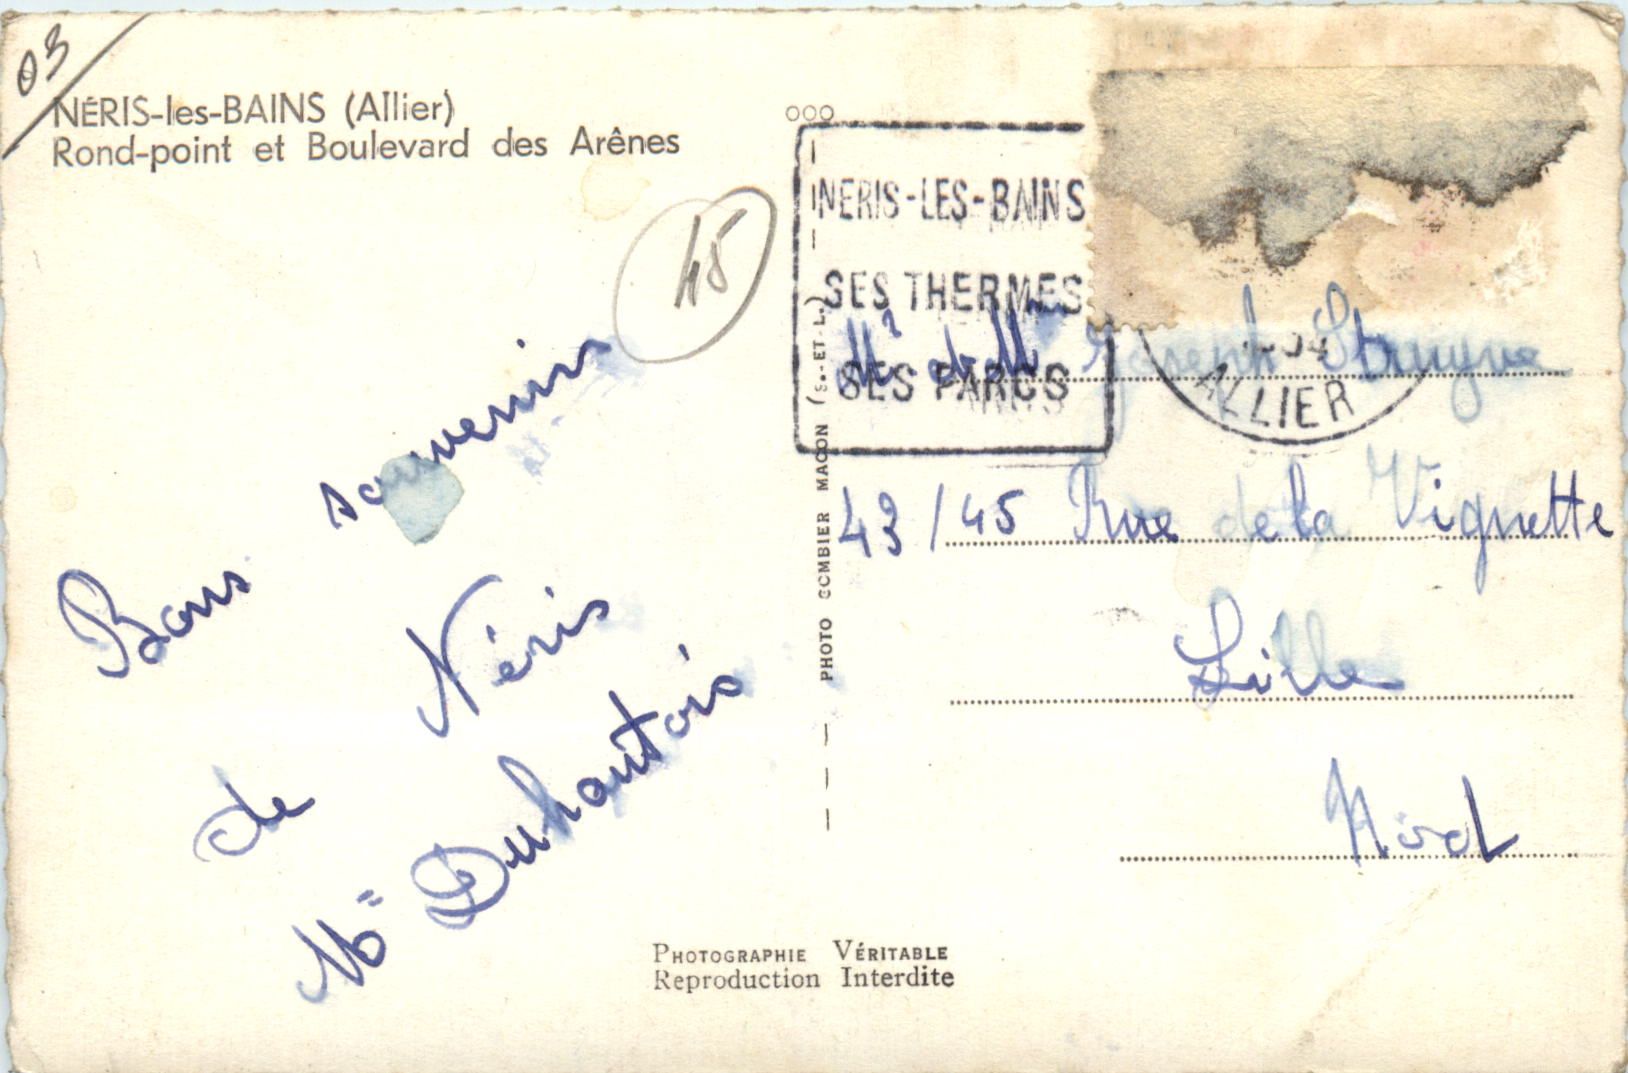 03
NÉRIS-les-BAINS (Allier)
Rond-point et Boulevard des Arênes
45
Bons souvenirs
de Néris
Mᵉ Duhautois
NERIS-LES-BAINS
SES THERMES
SES PARCS
ALLIER
PHOTO COMBIER MACON (S.-ET-L.)
Mʳ et Mᵉ Joseph Struyve
43/45 Rue de la Vignette
Lille
Nord
PHOTOGRAPHIE VÉRITABLE
Reproduction Interdite